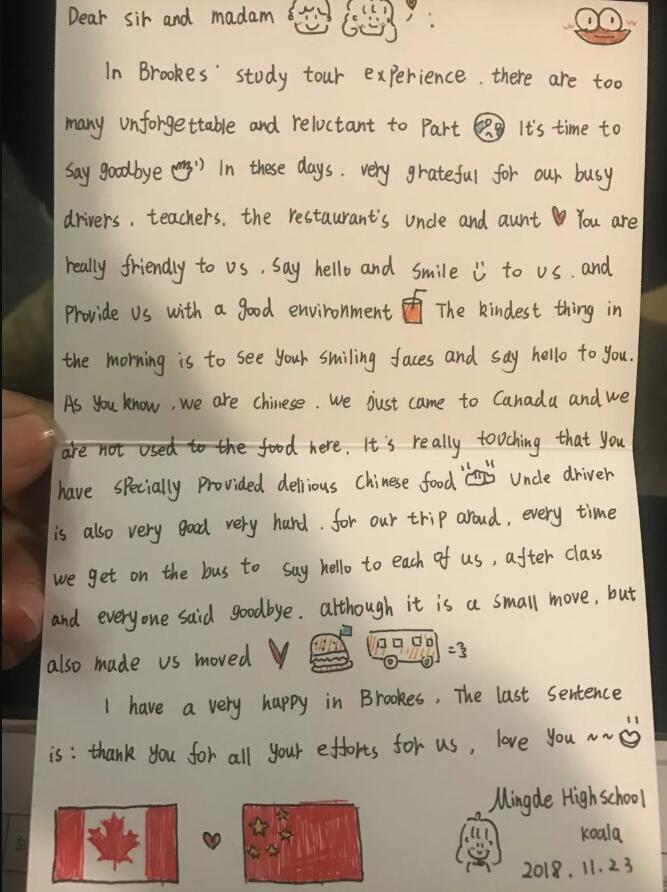 Dear sir and madam , :
In Brookes' study tour experience . there are too
many unforgettable and reluctant to Part It's time to
say goodbye In these days . very grateful for our busy
drivers . teachers. the restaurant's uncle and aunt You are
really friendly to us . say hello and smile to us . and
Provide us with a good environment The kindest thing in
the morning is to see your smiling faces and say hello to you.
As you know . we are chinese . we just came to Canada and we
are not used to the food here. It's really touching that you
have specially provided delious chinese food Uncle driver
is also very good very hard . for our trip aroud, every time
we get on the bus to say hello to each of us , after class
and everyone said goodbye. although it is a small move, but
also made us moved
I have a very happy in Brookes , The last sentence
is : thank you for all your efforts for us , love you ~~
Mingde High school
Koala
2018 . 11 . 23